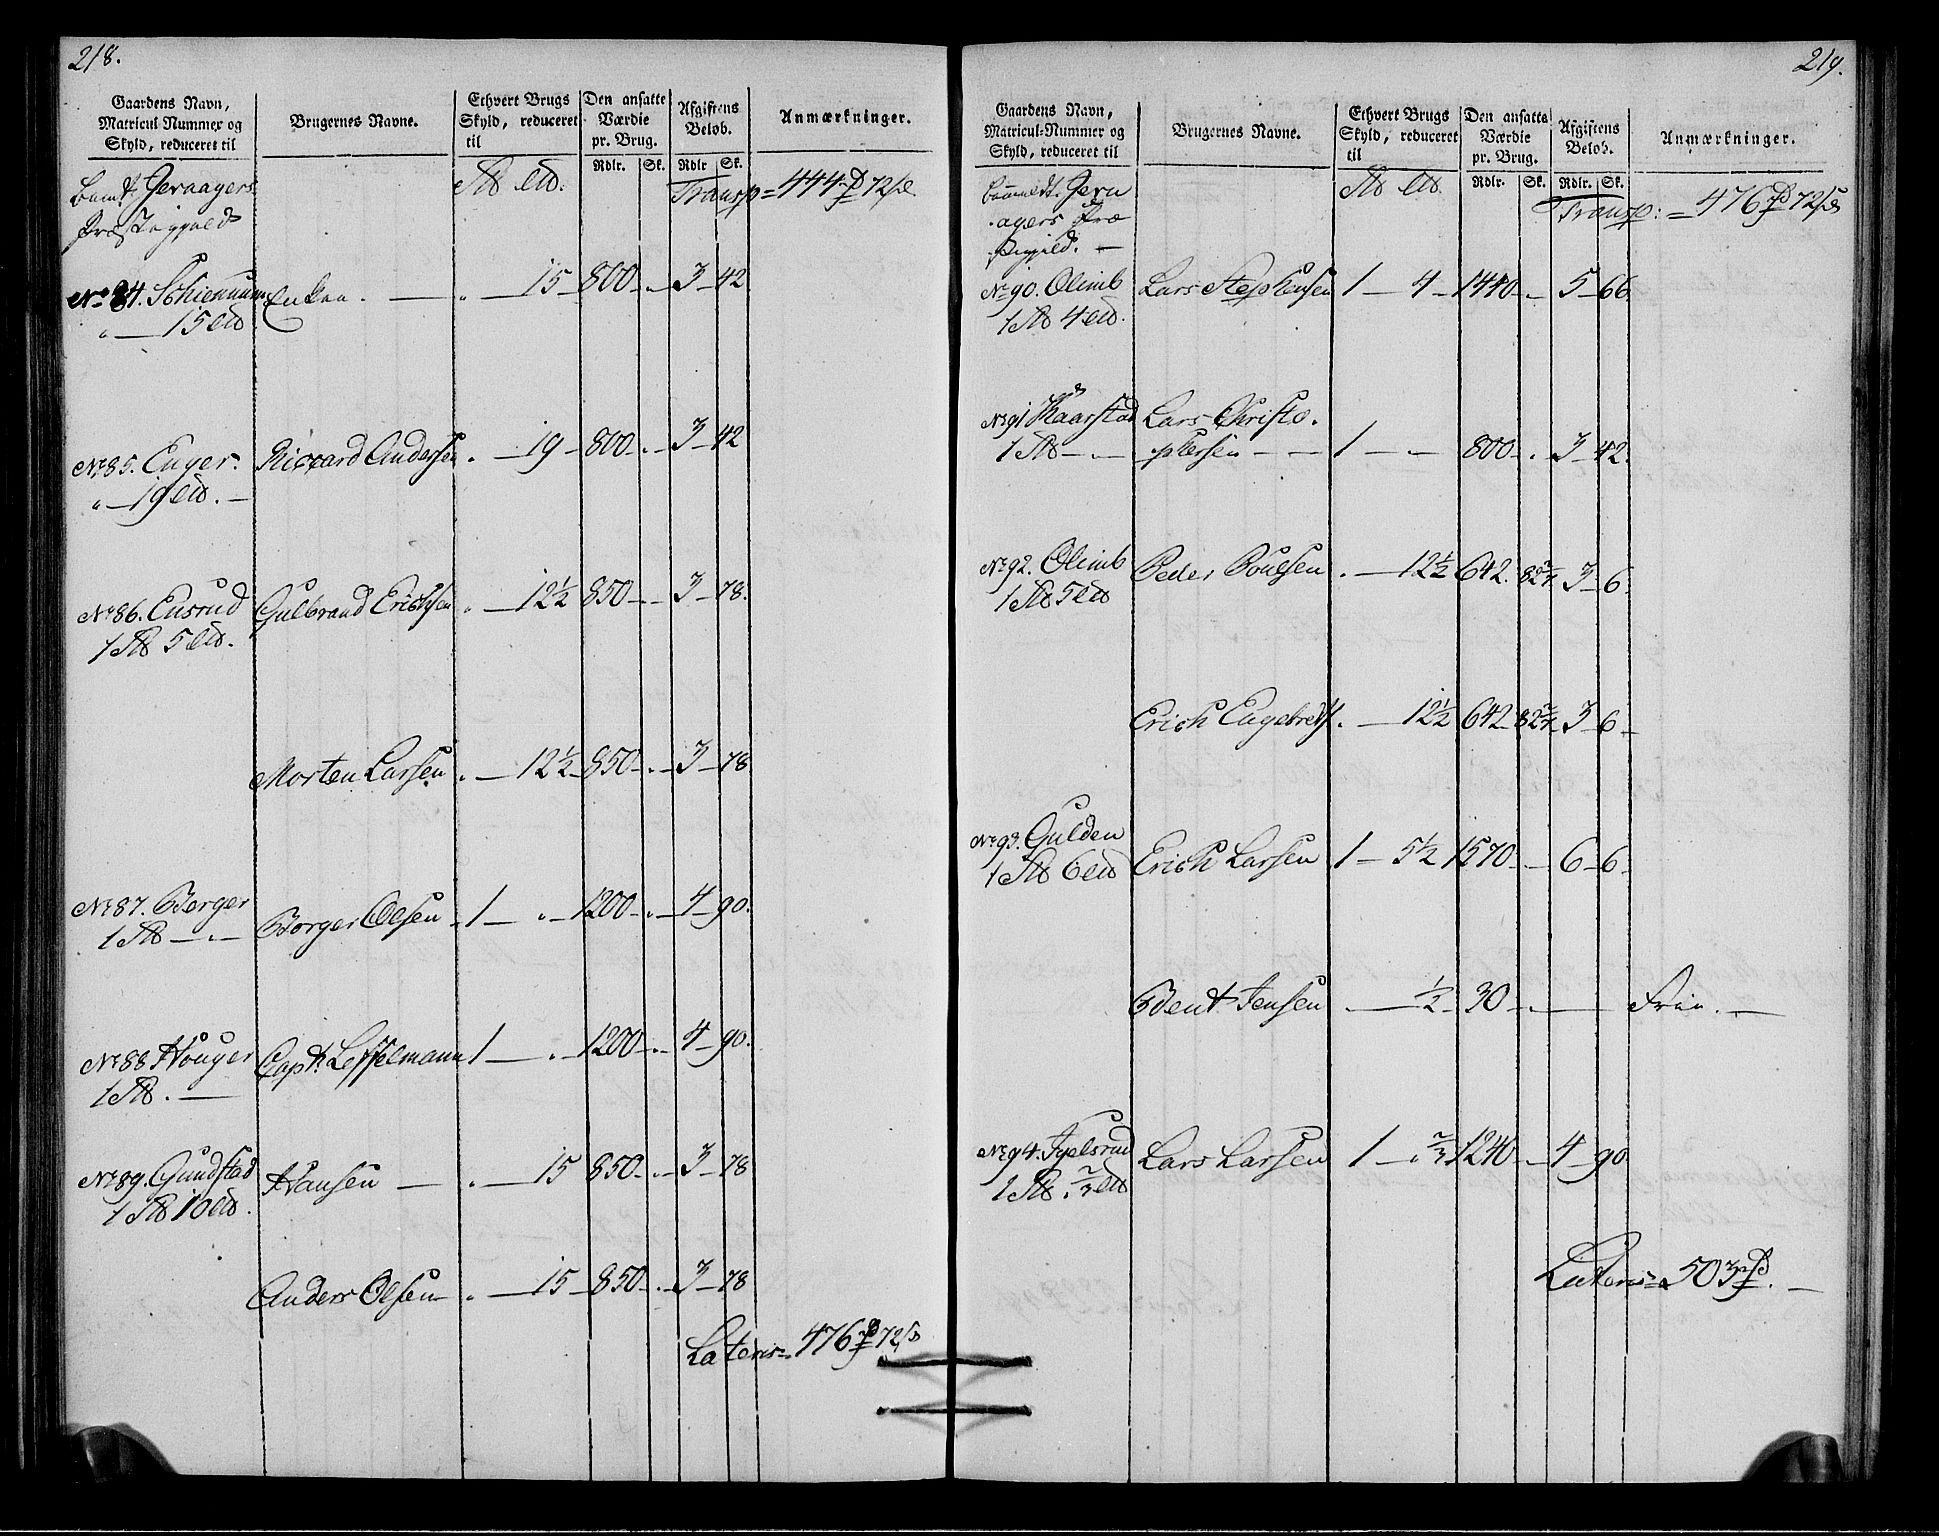 218.
Gaardens Navn, Matricul Nummer og Skyld, reduceret til | Brugernes Navne. | Ethvert Brugs Skyld, reduceret til | Den ansatte Værdie pr. Brug. Rdlr. Sk. | Afgiftens Beløb. Rdlr Sk. | Anmærkninger.
Jevnagers
Præstegjeld
Transp = 444 72
No 84. Schiennum Enken. — " — 15 — 800 — " — 3 — 42
" — 15
No 85. Enger. Riccard Andersen " — 19 — 800 — " — 3 — 42
" — 19
No 86. Eusrud Gulbrand Erichsen " — 12½ 850 — " — 3 — 78.
1 5
Morten Larsen " — 12½ — 850 — " — 3 — 78
No 87. Berger Borger Olsen 1 — " — 1200 — " — 4 — 90.
1 — " —
No 88 Houger Capt. Leffelmann 1 — " — 1200 — " — 4 — 90.
1 . —
No 89. Gundstad Hansen — " — 15 850 — " — 3 — 78
1 10
Anders Olsen — " — 15 — 850 — " — 3 — 78
Lateris = 476 72
219.
Gaardens Navn, Matricul-Nummer og Skyld, reduceret til | Brugernes Navne. | Ethvert Brugs Skyld, reduceret til | Den ansatte Værdie pr. Brug. Rdlr. Sk. | Afgiftens Beløb. Rdlr. Sk. | Anmærkninger.
Jevn
agers Præ
stegjeld. —
Transp: = 476 72
No 90. Olimb Lars Stephensen 1 — 4 — 1440 — " — 5 — 66.
1 4
No 91 Haarstad Lars Christo-
1 — " — phersen — — 1 — " — 800 — " — 3 — 42.
No 92. Olimb Peder Poulsen " — 12½ 642. 82 2/7 3 — 6.
1 5
Erich Engebrets. " — 12½ 642 — 82 2/7 — 3 — 6 —
No 93. Gulden Erich Larsen 1 — 5½ 1570 — " — 6 — 6 —
1 6
Bent Jensen " — ½ — 30 — " — — Frie. —
No 94. Igelsrud Lars Larsen 1 — 2/3 1240 — " — 4 — 90
1 . 2/3
Lateris = 503 . —